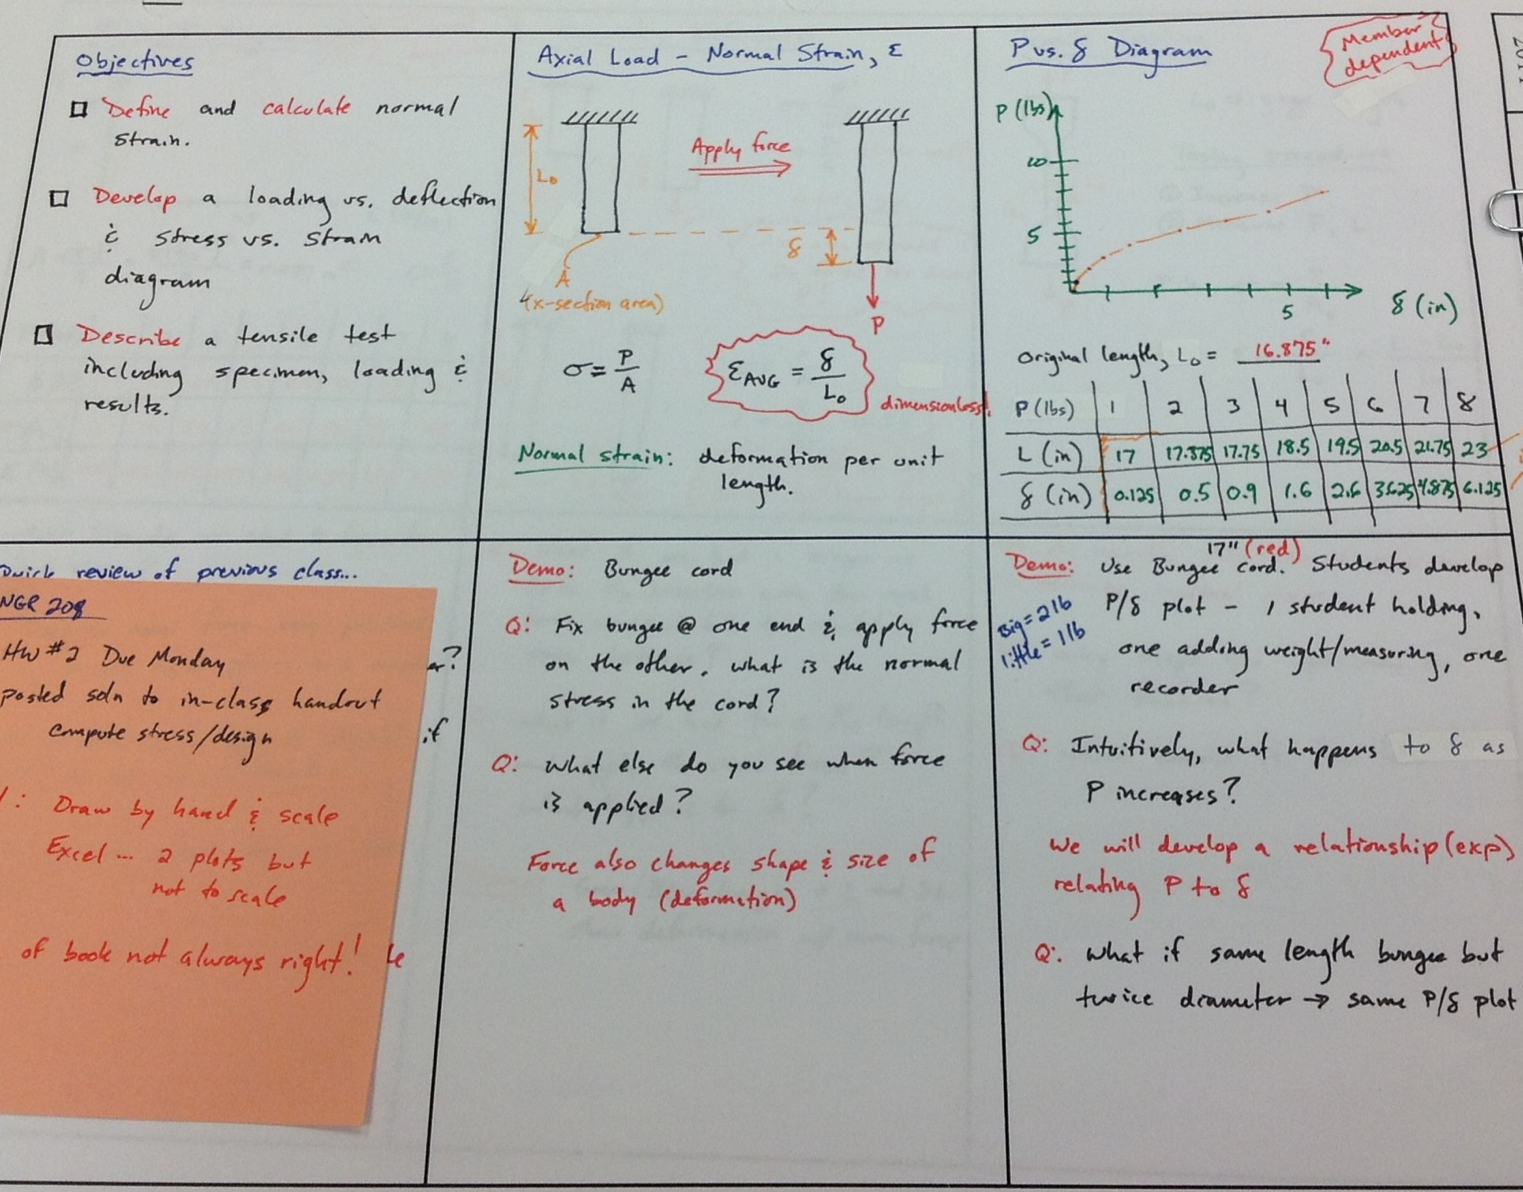 Objectives
☐ Define and calculate normal
strain.
☐ Develop a loading vs. deflection
& stress vs. strain
diagram
☐ Describe a tensile test
including specimen, loading &
results.
Axial Load - Normal Strain, ε
L₀
Apply force
δ
A
(x-section area)
P
σ = P/A
ε_AVG = δ/L₀
dimensionless!
Normal strain: deformation per unit
length.
P vs. δ Diagram
Member
dependent
P (lbs)
10
5
5
δ (in)
Original length, L₀ = 16.875"
P (lbs) 1 2 3 4 5 6 7 8
L (in) 17 17.375 17.75 18.5 19.5 20.5 21.75 23
δ (in) 0.125 0.5 0.9 1.6 2.6 3.625 4.875 6.125
Quick review of previous class...
NGR 208
HW #2 Due Monday
posted soln to in-class handout
compute stress/design
: Draw by hand & scale
Excel... 2 plots but
not to scale
of book not always right!
if
Demo: Bungee cord
Q: Fix bungee @ one end & apply force
on the other. what is the normal
stress in the cord?
Q: What else do you see when force
is applied?
Force also changes shape & size of
a body (deformation)
17" (red)
Demo: Use Bungee cord. Students develop
P/δ plot - 1 student holding,
one adding weight/measuring, one
recorder
Big = 2 lb
little = 1 lb
Q: Intuitively, what happens to δ as
P increases?
We will develop a relationship (exp)
relating P to δ
Q: What if same length bungee but
twice diameter → same P/δ plot